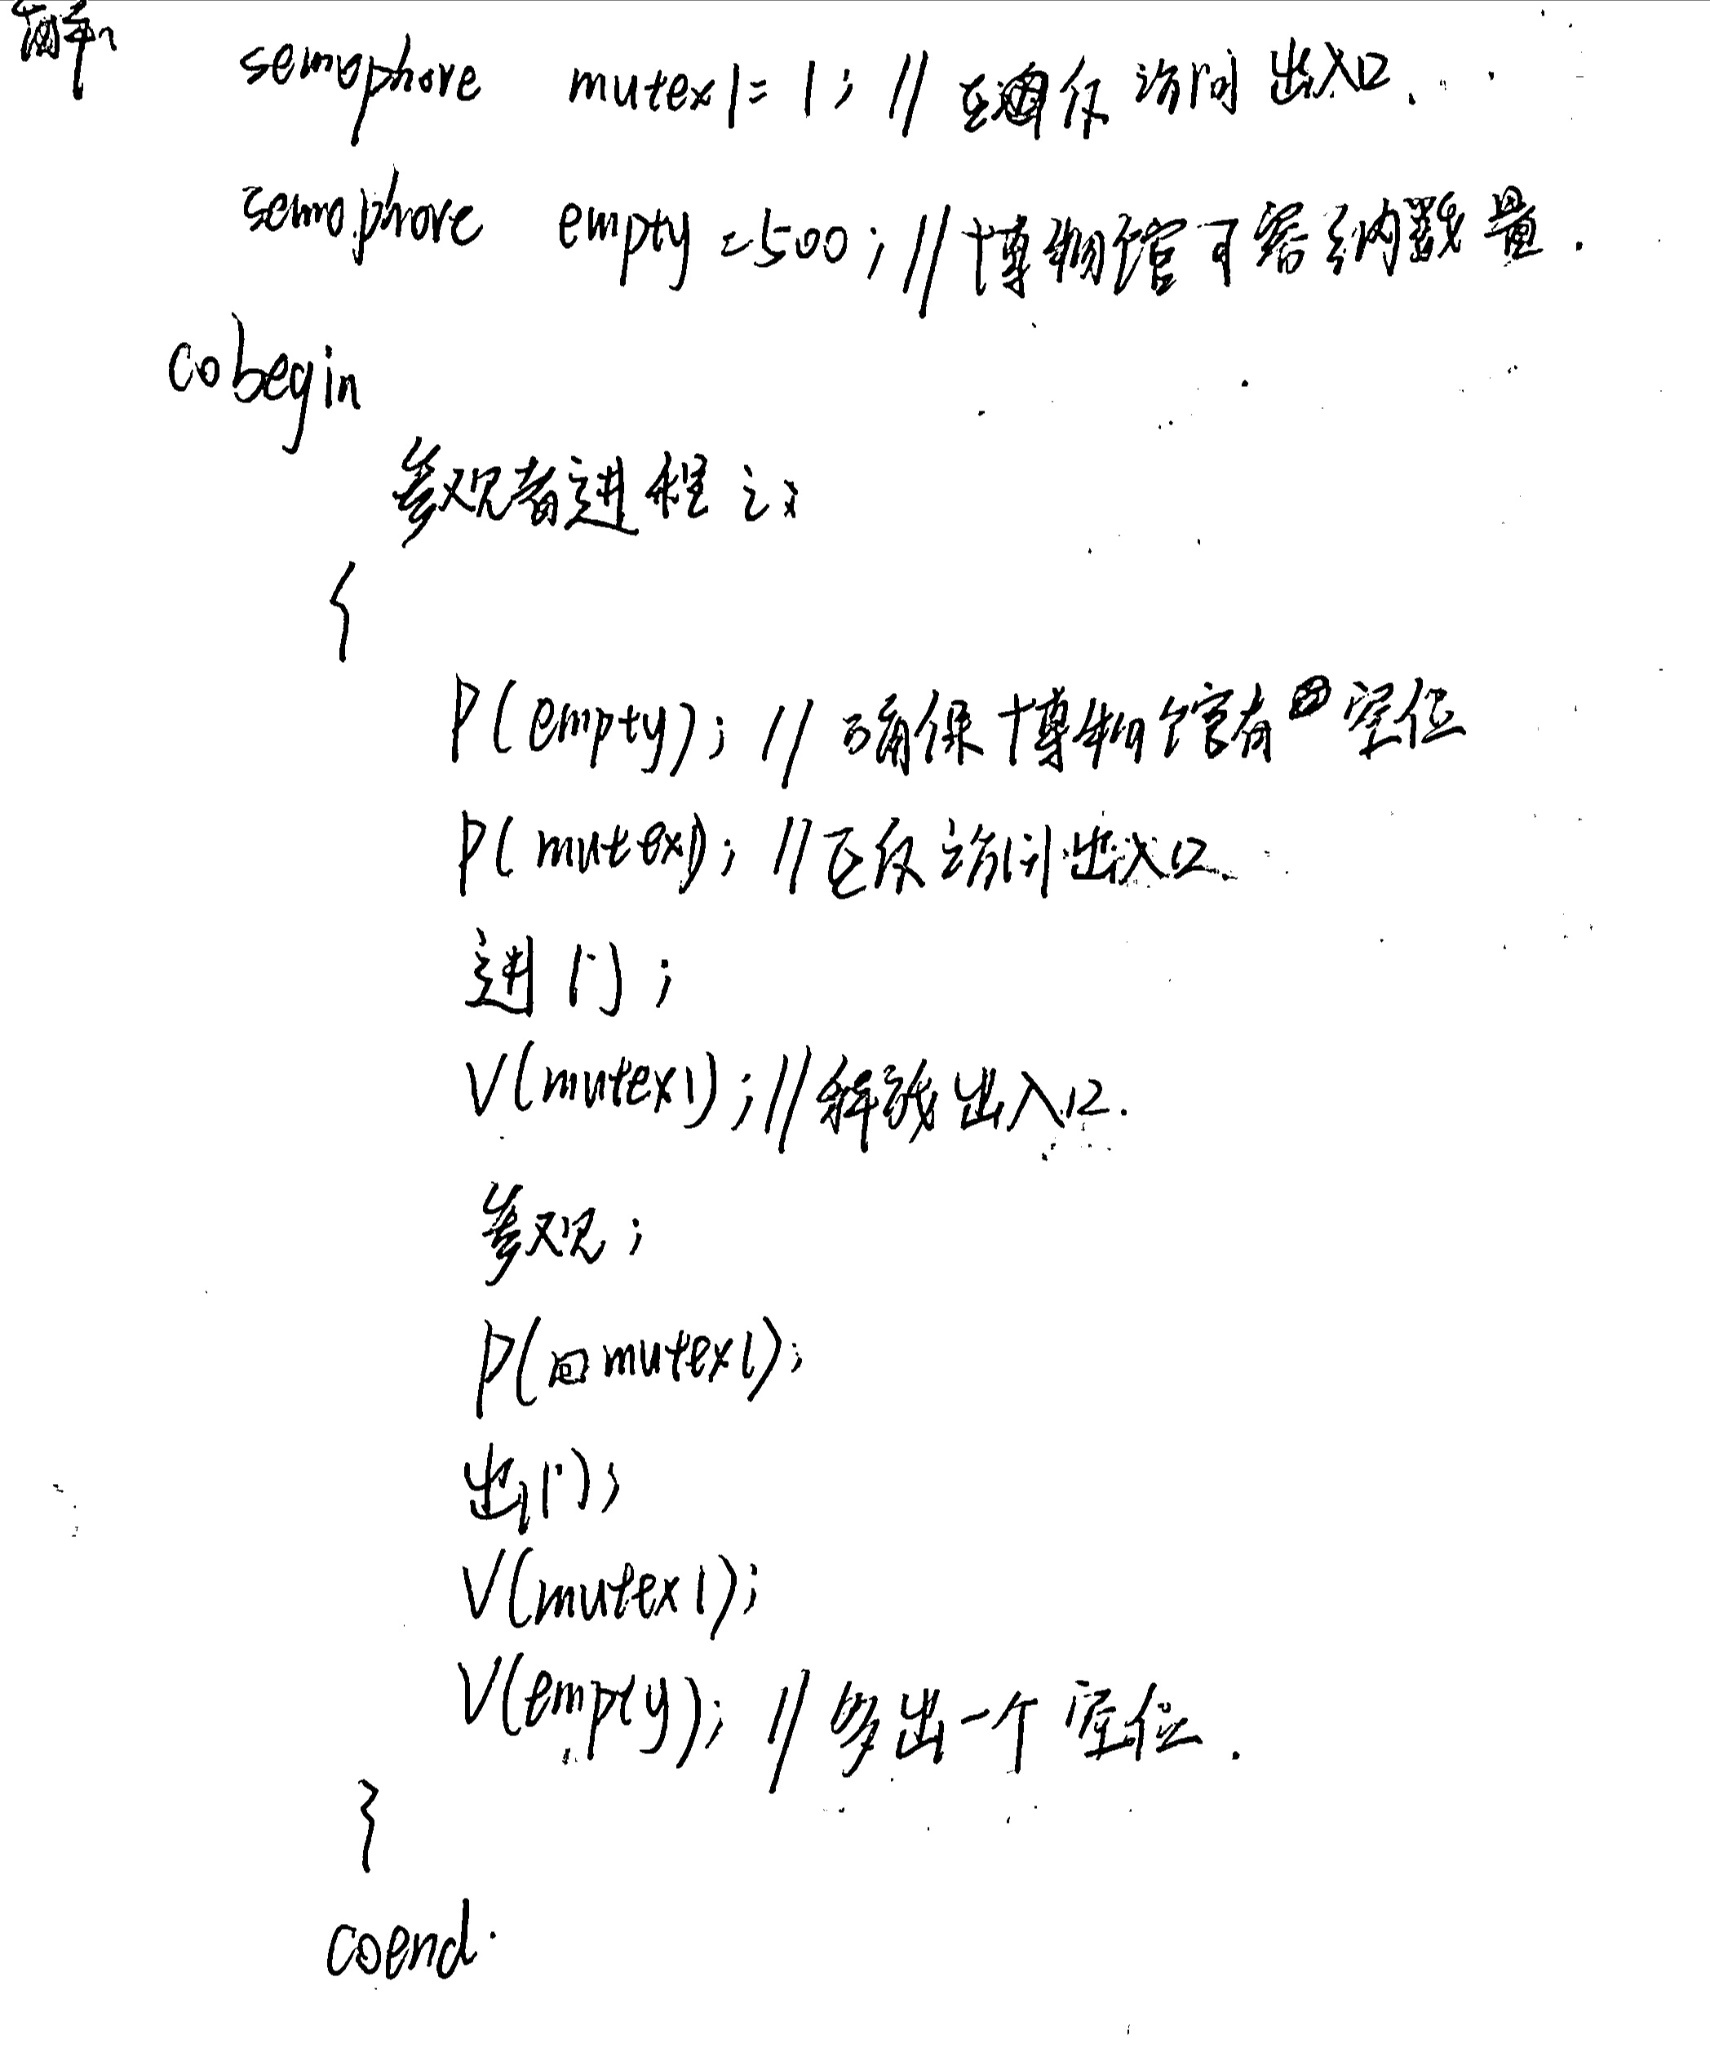 解:
semophore mutex1 = 1; // 互斥访问出入口.
semophore empty = 500; // 博物馆可容纳数量.
cobegin
参观者进程i:
{
P(empty); // 确保博物馆有空位
P(mutex1); // 互斥访问出入口.
进门;
V(mutex1); // 释放出入口.
参观;
P(mutex1);
出门;
V(mutex1);
V(empty); // 多出一个空位.
}
coend.